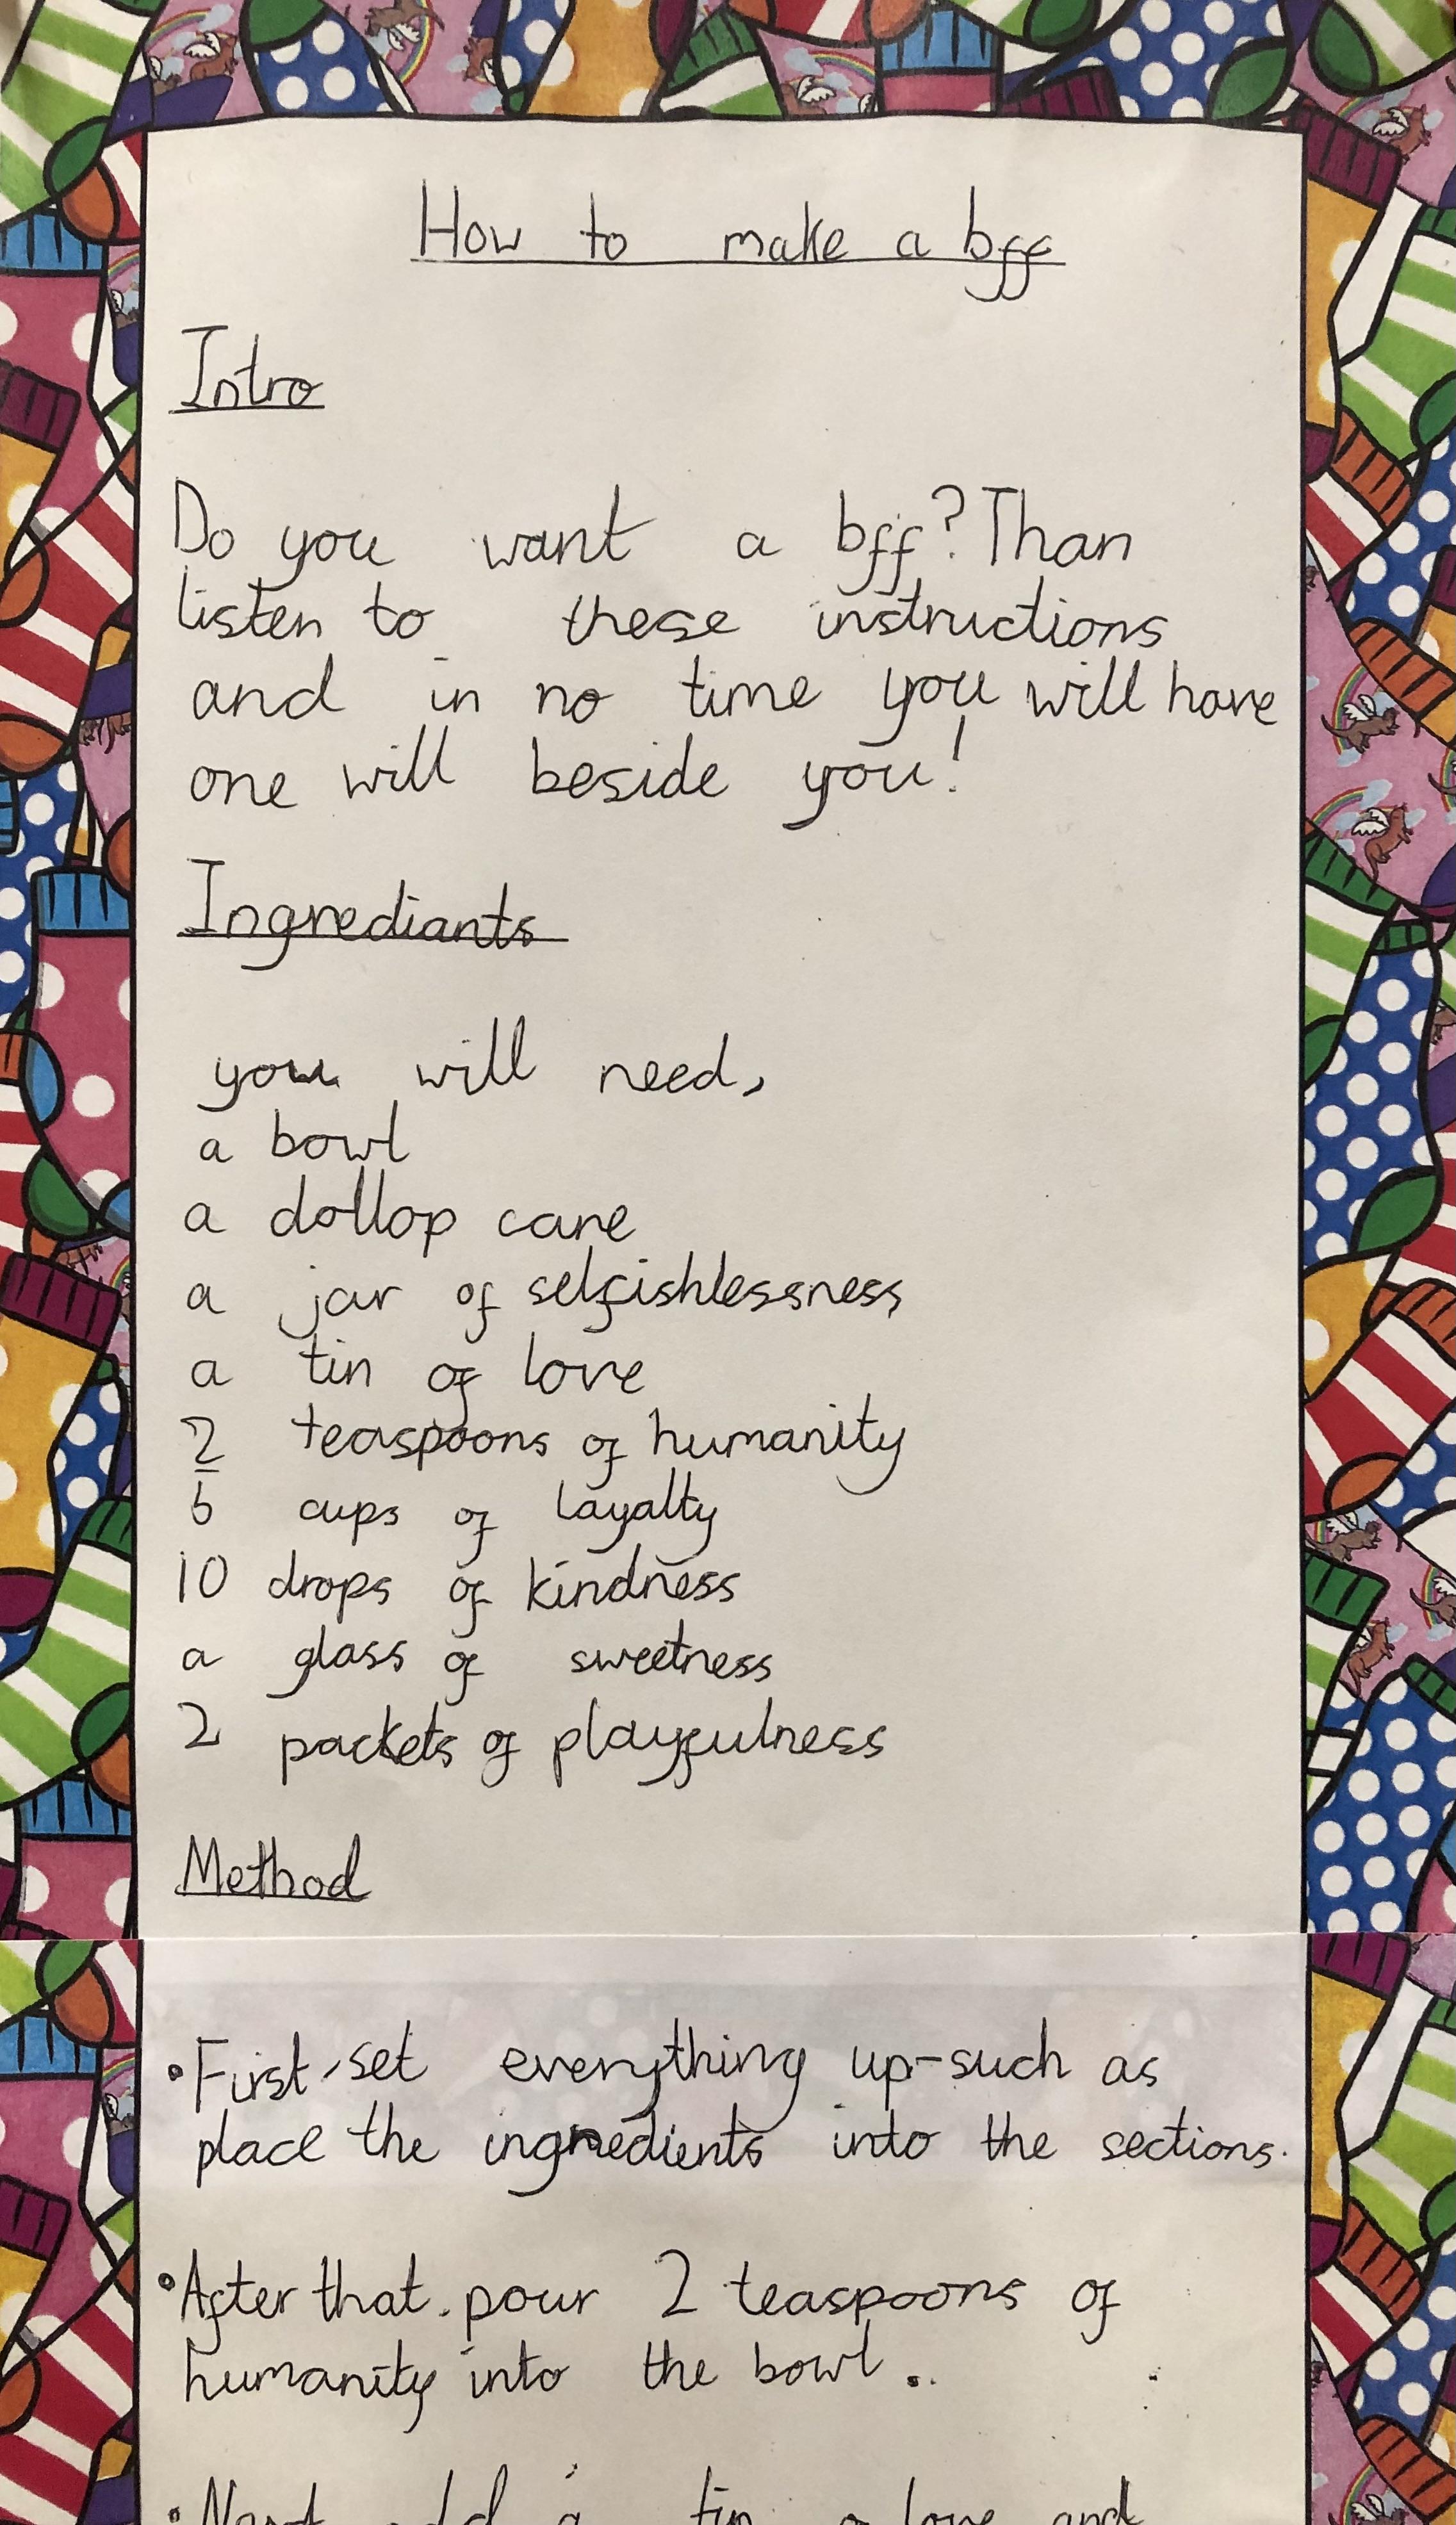 How to make a bff
Intro
Do you want a bff? Than
listen to these instructions
and in no time you will have
one will beside you!
Ingrediants
you will need,
a bowl
a dollop care
a jar of selfishlessness
a tin of love
2 teaspoons of humanity
6 cups of layalty
10 drops of kindness
a glass of sweetness
2 packets of playfulness
Method
• First, set everything up-such as
place the ingredients into the sections.
• After that. pour 2 teaspoons of
humanity into the bowl..
• Next add a tin o love and